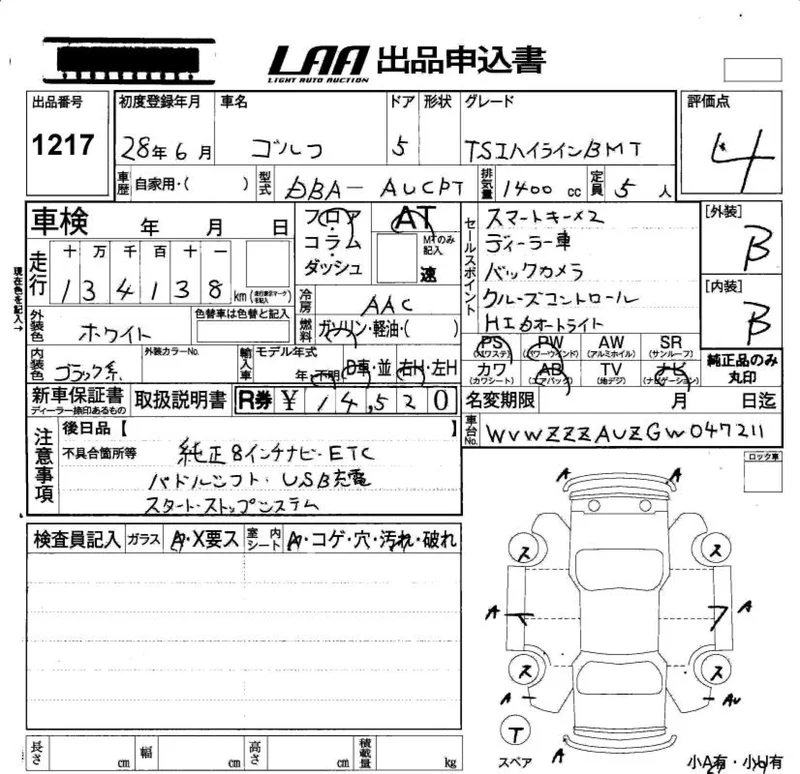 LAA 出品申込書
LIGHT AUTO AUCTION
出品番号 初度登録年月 車名 ドア 形状 グレード 評価点
1217 28年6月 ゴルフ 5 TSIハイラインBMT 4
車歴 自家用・( ) 型式 DBA-AUCPT 排気量 1400 cc 定員 5 人
車検 年 月 日 フロア・コラム・ダッシュ AT MTのみ記入 速
セールスポイント スマートキー×2
ディーラー車
バックカメラ
クルーズコントロール
HIDオートライト
[外装] B
[内装] B
現在色を記入→
走行 十 万 千 百 十 一
1 3 4 1 3 8 km (走行表示マークを記入)
冷房 AAC
燃料 ガソリン・軽油・( )
外装色 ホワイト 色替車は色替と記入
内装色 ブラック系 外装カラーNo. 輸入車 モデル年式 年・不明 D車・並 右H・左H
PS (パワステ) PW (パワーウインド) AW (アルミホイル) SR (サンルーフ)
カワ (カワシート) AB (エアバッグ) TV (地デジ) ナビ (ナビゲーション)
純正品のみ丸印
新車保証書 ディーラー捺印あるもの 取扱説明書 R券 ¥ 14,520
名変期限 月 日迄
注意事項 後日品【 】
不具合箇所等 純正8インチナビ・ETC
パドルシフト・USB充電
スタート・ストップシステム
車台No. WVWZZZAUZGW047211
ロック車
検査員記入 ガラス A・X要ス 室内シート A・コゲ・穴・汚れ・破れ
A A
ス ス
A A
ス ス
A AU
T
スペア
A
小A有・小U有
長さ cm 幅 cm 高さ cm 積載量 kg